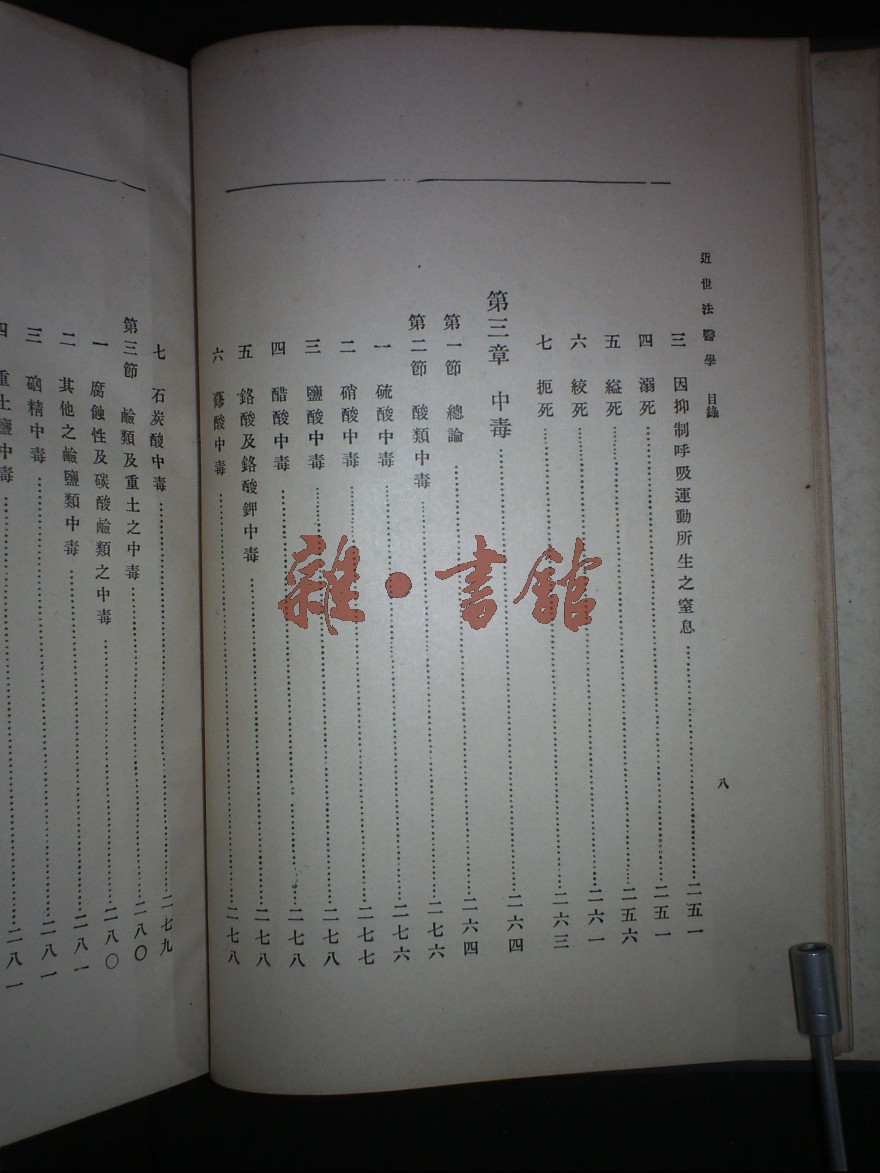 近世法醫學　目錄
八
三　因抑制呼吸運動所生之窒息……二五一
四　溺死……二五一
五　縊死……二五六
六　絞死……二六一
七　扼死……二六三
第三章　中毒……二六四
第一節　總論……二六四
第二節　酸類中毒……二七六
一　硫酸中毒……二七六
二　硝酸中毒……二七七
三　鹽酸中毒……二七八
四　醋酸中毒……二七八
五　鉻酸及鉻酸鉀中毒……二七八
六　蓚酸中毒……二七八
七　石炭酸中毒……二七九
第三節　鹼類及重土之中毒……二八〇
一　腐蝕性及碳酸鹼類之中毒……二八〇
二　其他之鹼鹽類中毒……二八一
三　硇精中毒……二八一
四　重土鹽中毒……二八一
雜·書館